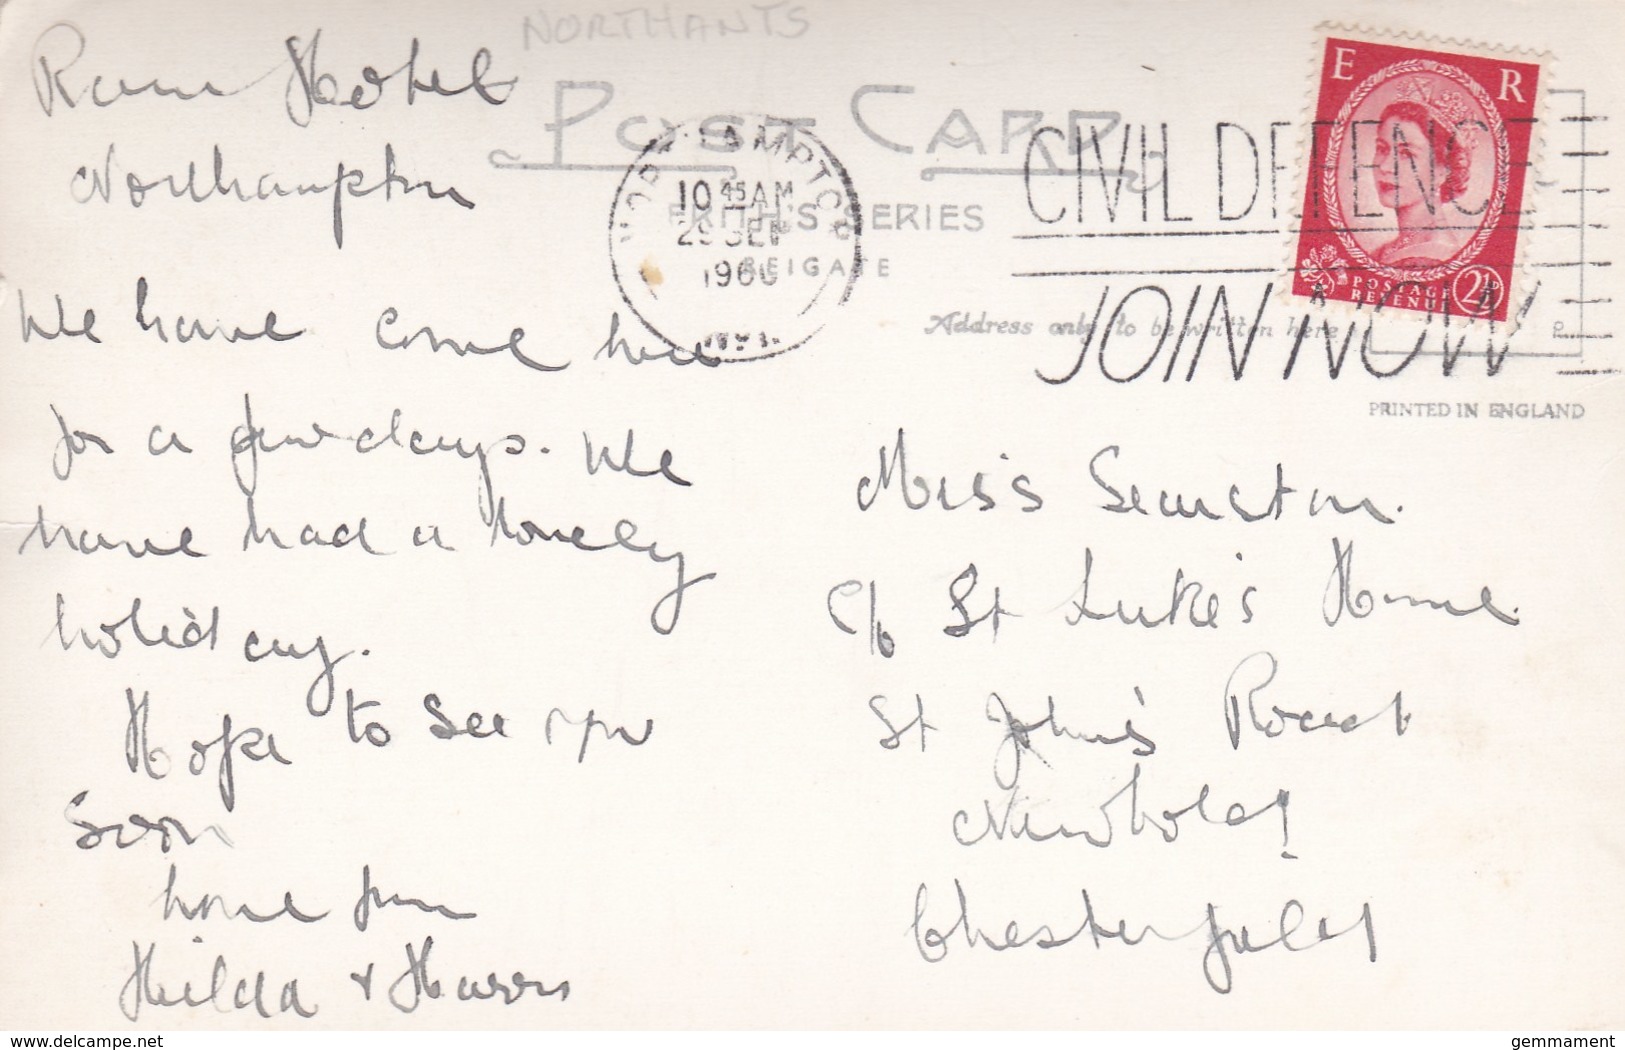 NORTHANTS
Ram Hotel
Northampton
We have come here
for a few days. We
have had a lovely
holiday.
Hope to see you
soon
love from
Hilda + Harry
POST CARD
FRITH'S SERIES
REIGATE
Address only to be written here
NORTHAMPTON
10 45 AM
29 SEP
1960
CIVIL DEFENCE
JOIN NOW
E R
POSTAGE
REVENUE
2½D
PRINTED IN ENGLAND
Miss
c/o St Luke's Home
St John's Road
Newbold
Chesterfield
delcampe.net
gemmament